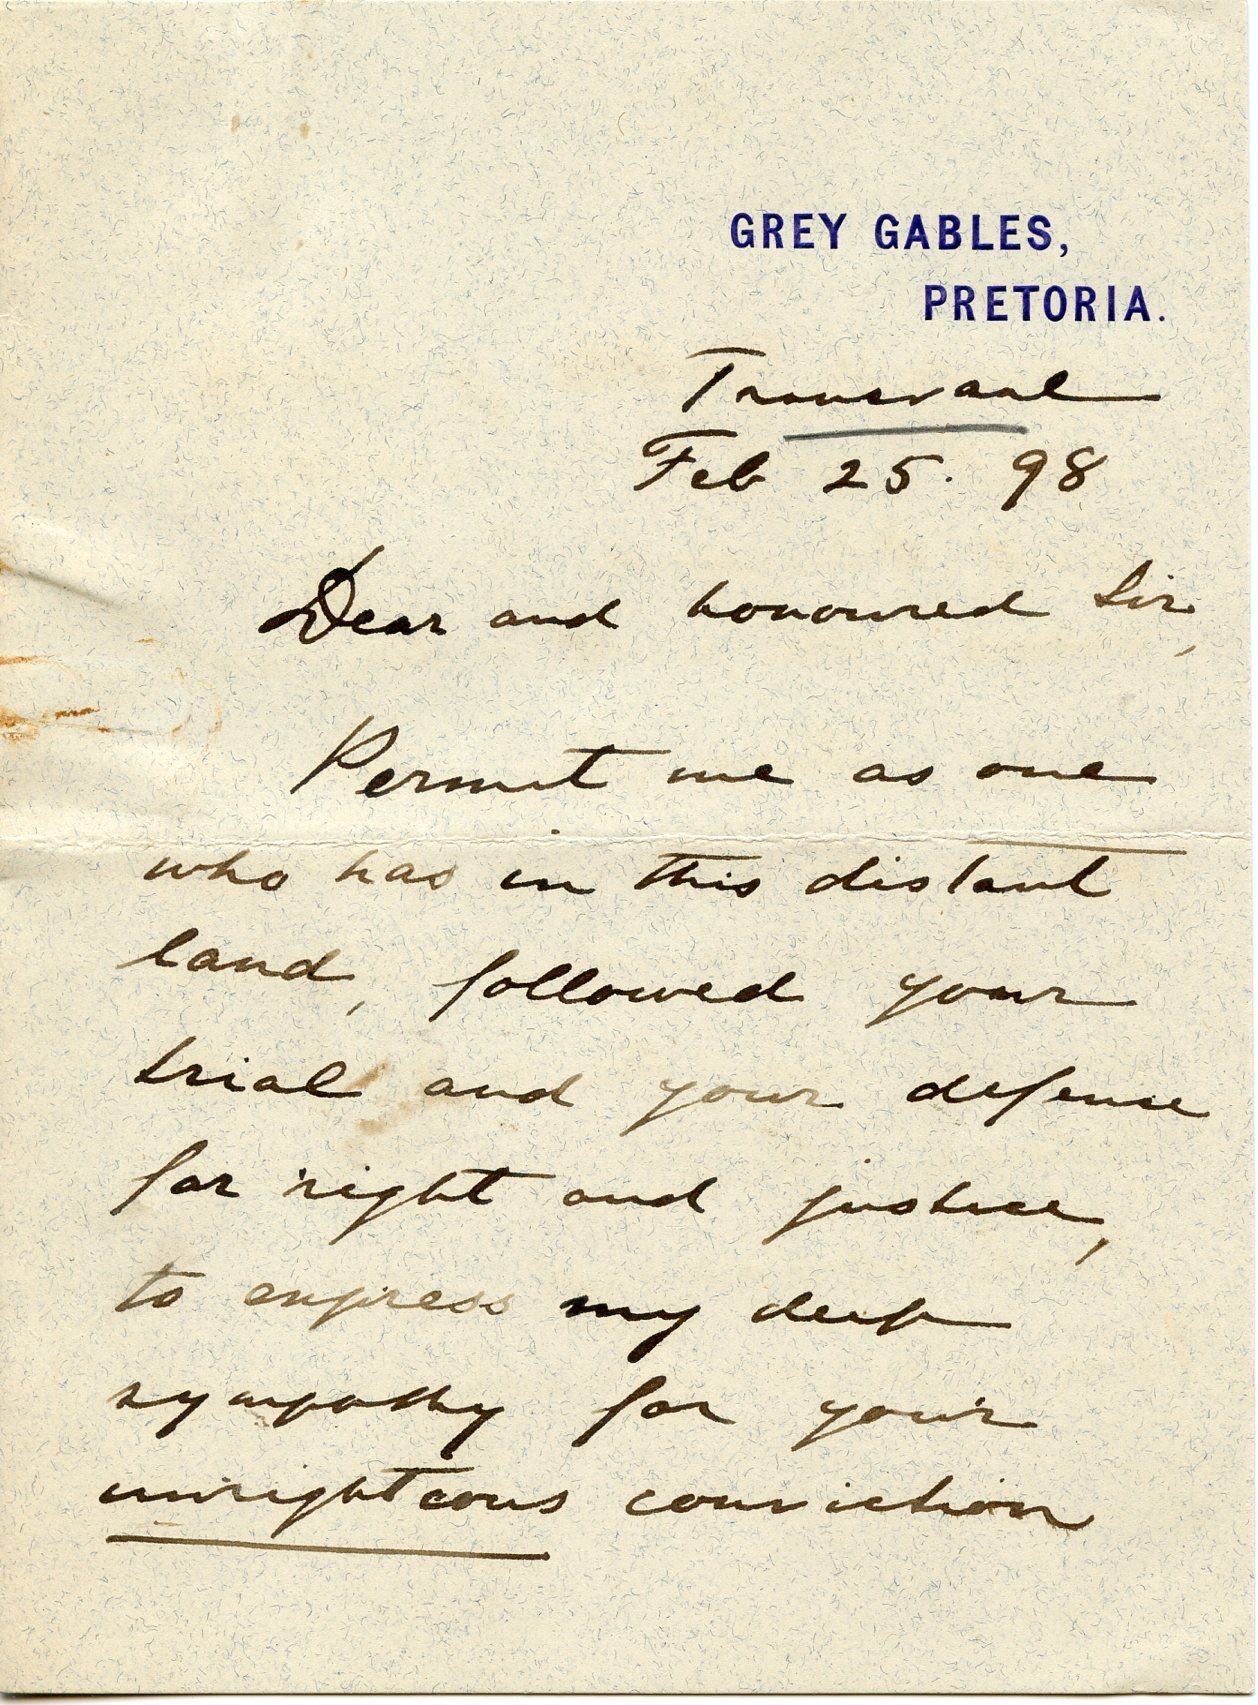 GREY GABLES,
PRETORIA.
Transvaal
Feb 25. 98
Dear and honoured Sir,
Permit me as one
who has in this distant
land, followed your
trial and your defense
for right and justice,
to express my deep
sympathy for your
unrighteous conviction